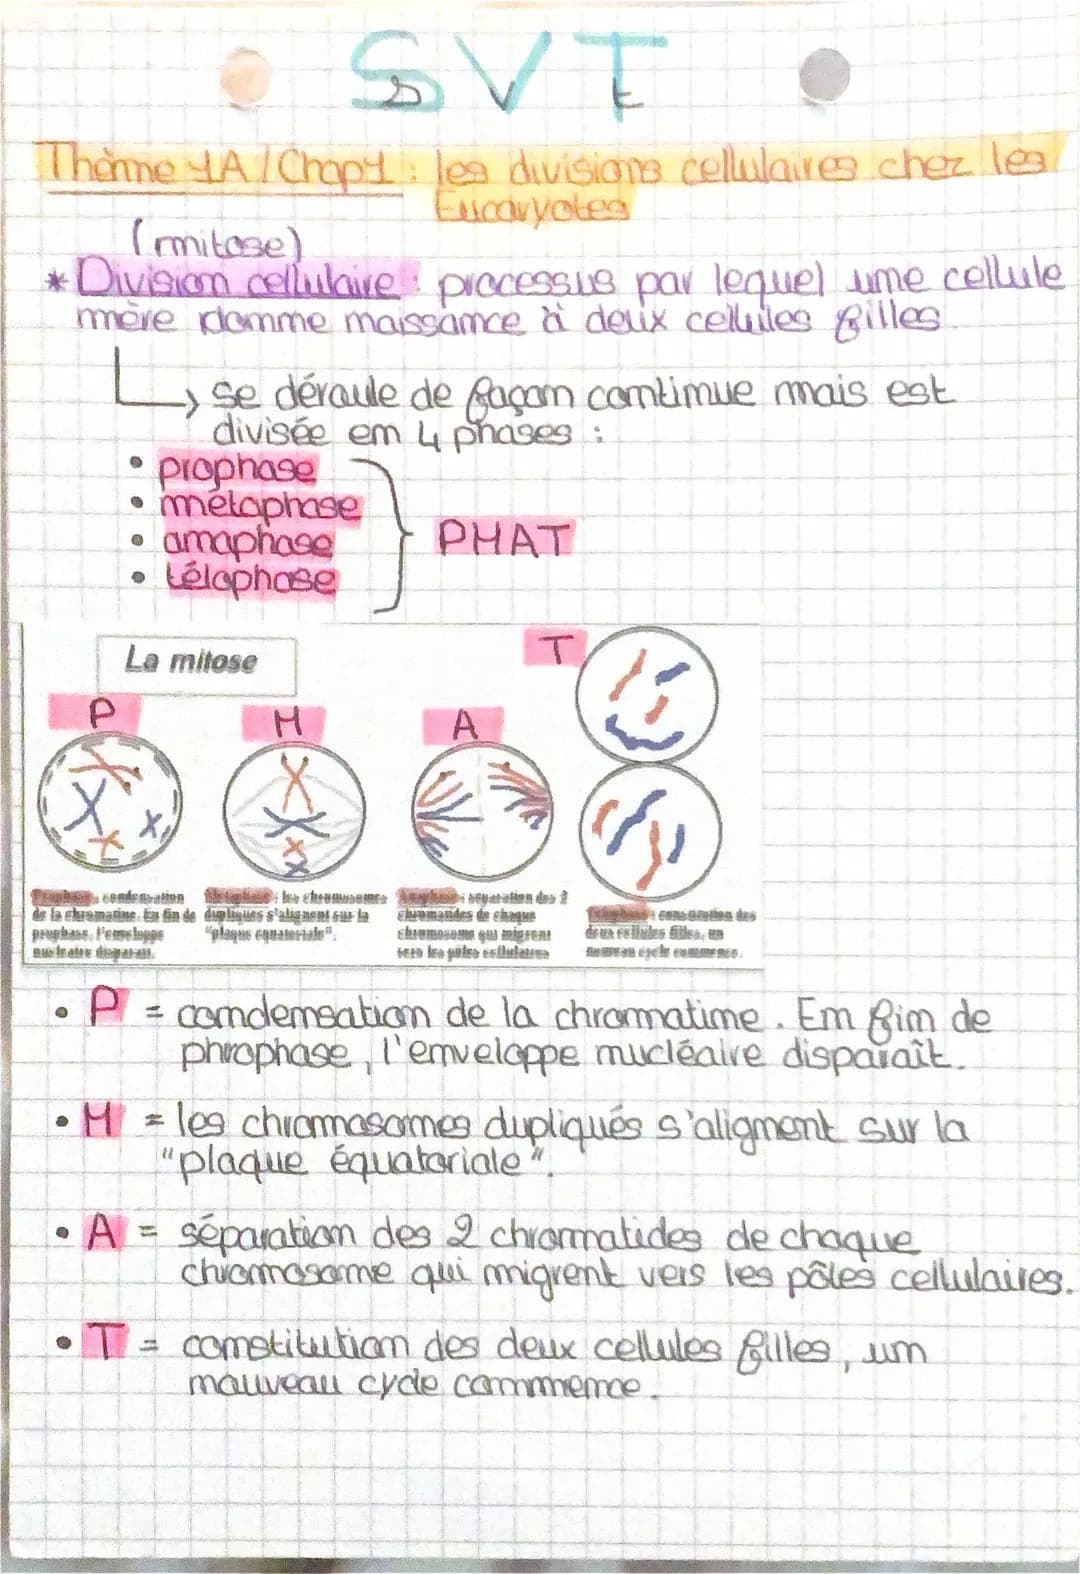 SVT
Thème 1A / Chap1 : les divisions cellulaires chez les
Eucaryotes
(mitose)
* Division cellulaire : processus par lequel une cellule
mère donne naissance à deux cellules filles.
↳ se déroule de façon continue mais est
divisée en 4 phases :
• prophase
• métaphase
• anaphase
• télophase
PMAT
La mitose
T
P
M
A
Prophase : condensation
de la chromatine. En fin de
prophase, l'enveloppe
nucléaire disparaît.
Métaphase : les chromosomes
dupliqués s'alignent sur la
"plaque équatoriale".
Anaphase : séparation des 2
chromatides de chaque
chromosome qui migrent
vers les pôles cellulaires
Télophase : constitution des
deux cellules filles, un
nouveau cycle commence.
• P = condensation de la chromatine. En fin de
phrophase, l'enveloppe nucléaire disparaît.
• M = les chromosomes dupliqués s'alignent sur la
"plaque équatoriale".
• A = séparation des 2 chromatides de chaque
chromosome qui migrent vers les pôles cellulaires.
• T = constitution des deux cellules filles, un
nouveau cycle commence.